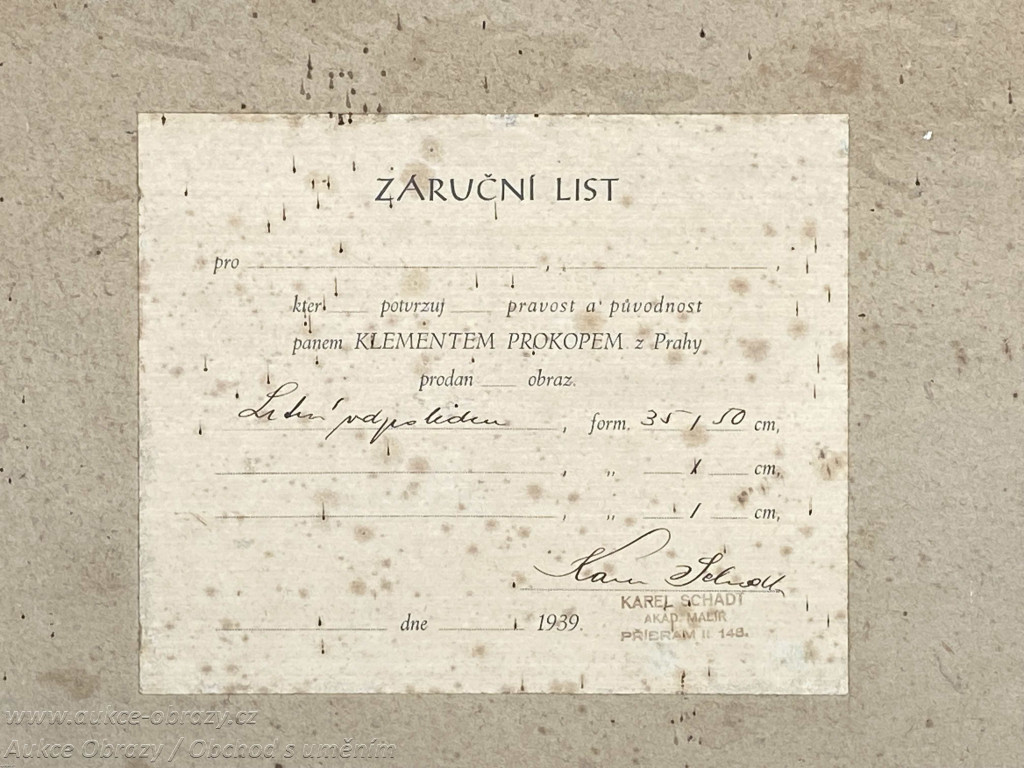 ZÁRUČNÍ LIST
pro , ,
kter potvrzuj pravost a původnost
panem KLEMENTEM PROKOPEM z Prahy
prodan obraz.
Letní odpoledne, form. 35 / 50 cm,
, „ / cm,
, „ / cm,
Karel Schadt
KAREL SCHADT
AKAD. MALÍŘ
dne 1939.
PŘÍBRAM II 148.
www.aukce-obrazy.cz
Aukce Obrazy / Obchod s uměním